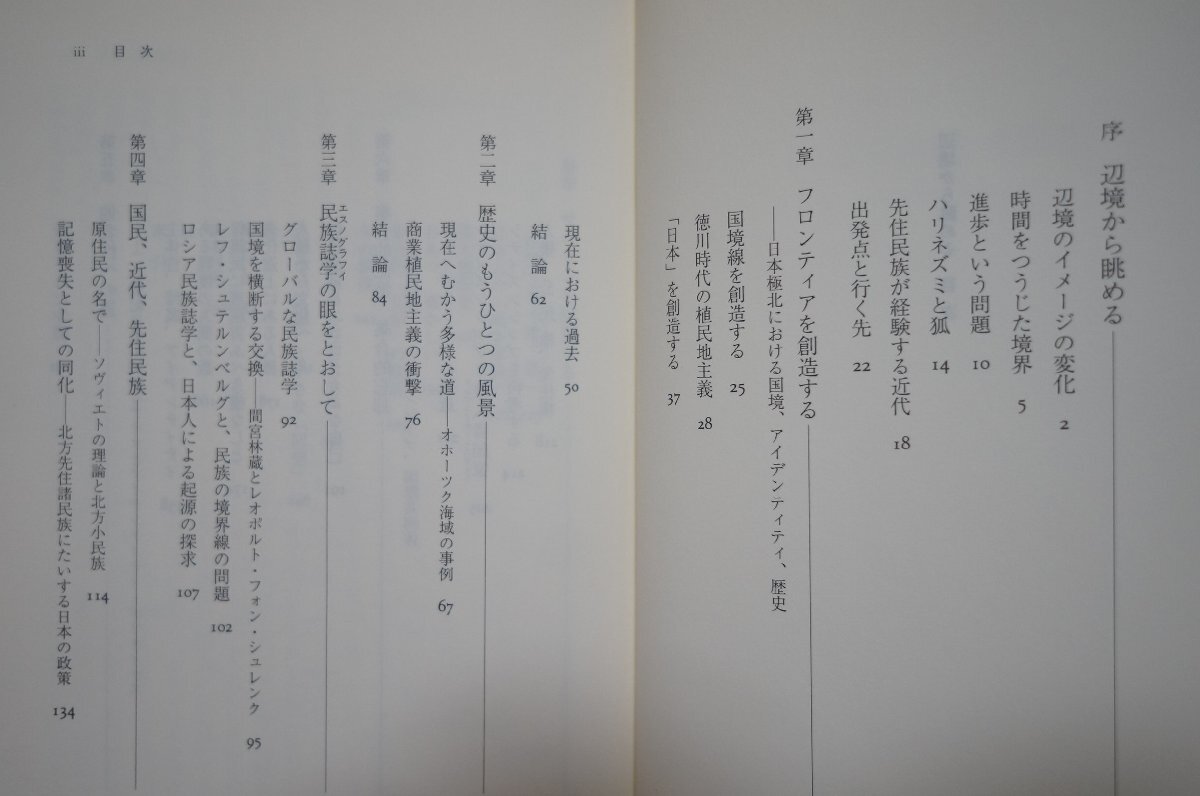 序　辺境から眺める
辺境のイメージの変化　2
時間をつうじた境界　5
進歩という問題　10
ハリネズミと狐　14
先住民族が経験する近代　18
出発点と行く先　22
第一章　フロンティアを創造する
――日本極北における国境、アイデンティティ、歴史
国境線を創造する　25
徳川時代の植民地主義　28
「日本」を創造する　37
iii　目　次
現在における過去　50
結　論　62
第二章　歴史のもうひとつの風景
現在へむかう多様な道――オホーツク海域の事例　67
商業植民地主義の衝撃　76
結　論　84
第三章　民族誌学の眼をとおして
エスノグラフィ
グローバルな民族誌学　92
国境を横断する交換――間宮林蔵とレオポルト・フォン・シュレンク　95
レフ・シュテルンベルグと、民族の境界線の問題　102
ロシア民族誌学と、日本人による起源の探求　107
第四章　国民、近代、先住民族
原住民の名で――ソヴィエトの理論と北方小民族　114
記憶喪失としての同化――北方先住諸民族にたいする日本の政策　134